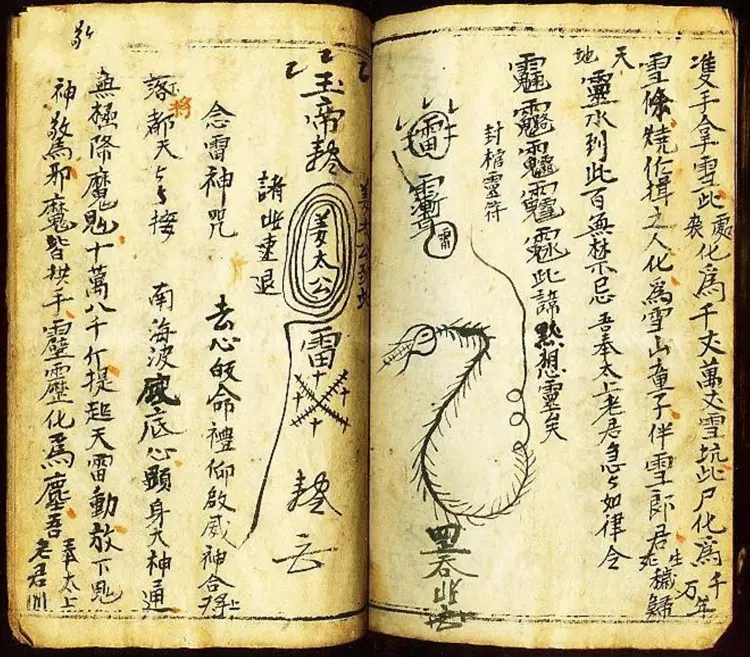 隻手拿雪此處化為千丈萬丈雪坑此尸化為千年萬
雪條燒作揖之人化為雪山童子伴雪郎君生死穢歸
天地靈水到此百無禁忌吾奉太上老君急与如律令
此諱默想靈
封棺靈符
雷
姜太公到此
玉帝
姜太公
雷
云
諸此速退
念雷神咒
去心皈命禮仰啟威神合降上
落都天与与接 南海波底心顕身天神通
無極降魔鬼十萬八千仃提起天雷動放下鬼
神敬為邪魔皆拱手霹靂化為塵吾奉太上老君